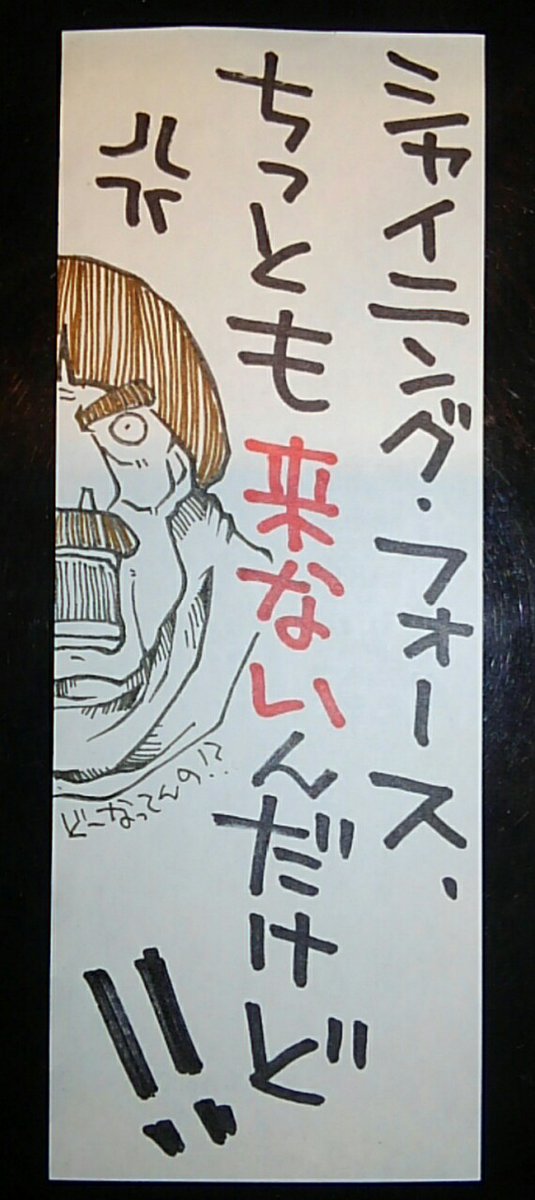 シャイニング・フォース、
ちっとも来ないんだけど!!
どーなってんの!?